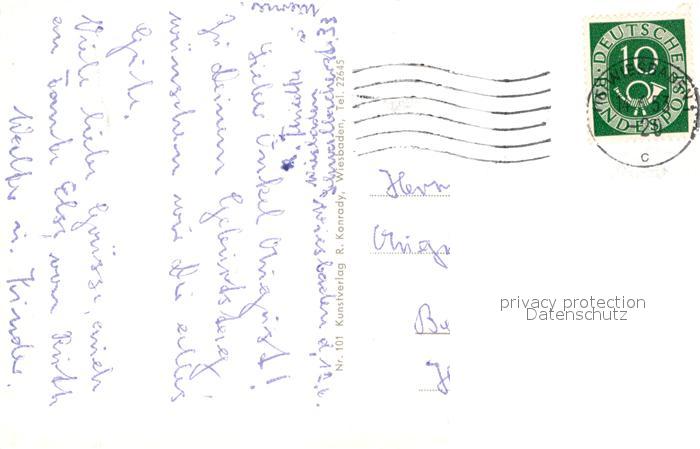 Wiesbaden, d. 12.6.
Lieber Onkel August!
Zu Deinem Geburtstag
wünschen wir Dir alles
Gute.
Viele liebe Grüsse, auch
an Tante Else, von Ruth
Walter u. Kinder.
Nr. 101 Kunstverlag R. Konrady, Wiesbaden, Tel. 22645
DEUTSCHE
BUNDESPOST
10
WIESBADEN
c
Herrn
Augu
Be
privacy protection
Datenschutz